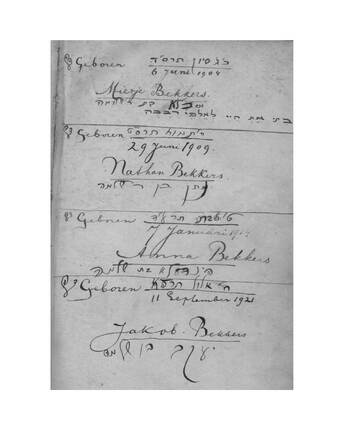 Geboren כ"ג סיון תרס"ד
6 Juni 1904
Mietje Bekkers.
בת שלמה
לאלפי רבבה
Geboren י' תמוז תרס"ט
29 Juni 1909.
Nathan Bekkers.
נתן בן ר' שלמה
Geboren ט' טבת תרע"ד
7 Januari 1914
Anna Bekkers
בת שלמה
Geboren ח' אלול תרפ"א
11 September 1921
Jakob. Bekkers
יעקב בן שלמה